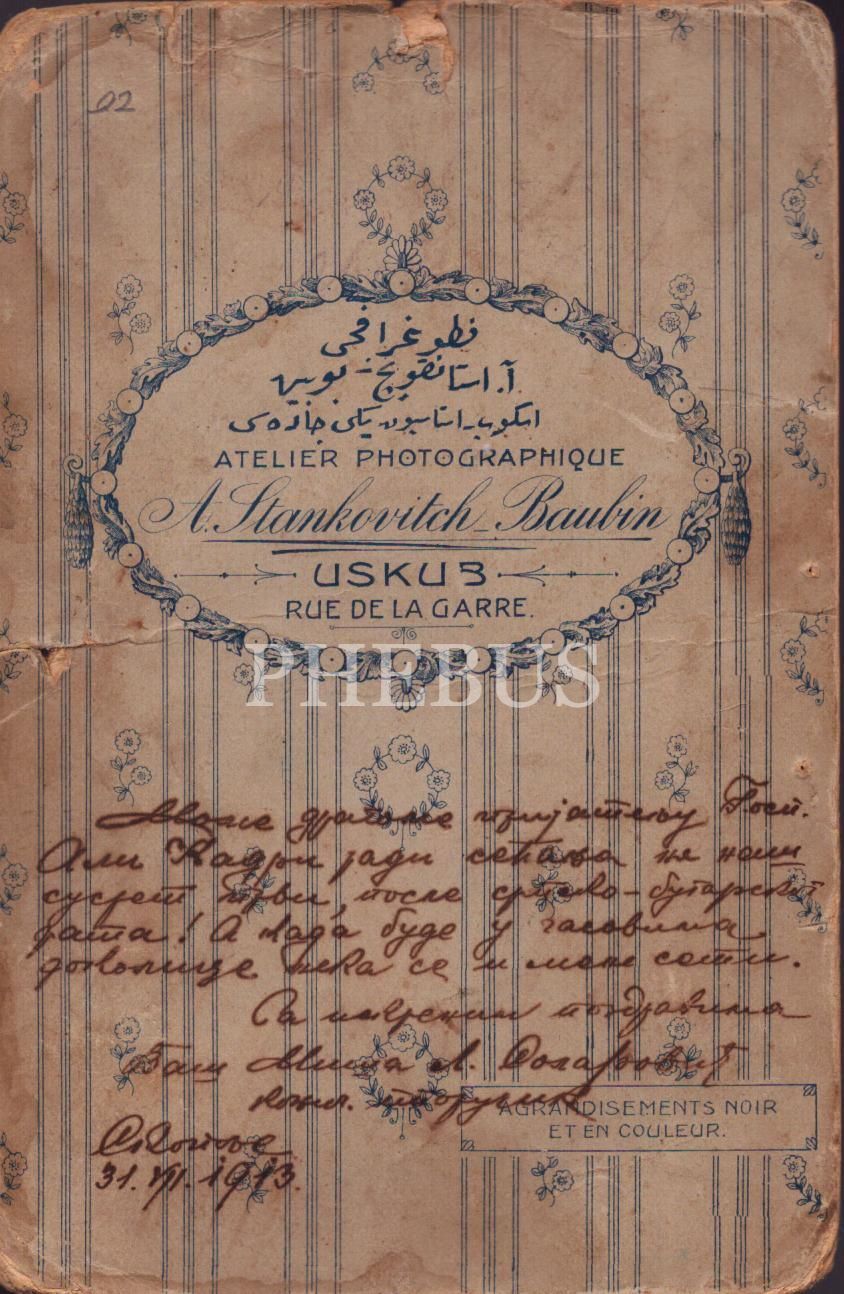 02
فطوغرافجى
آ. استانقويچ - بوبين
اسكوب - استاسيون يكى جاده سى
ATELIER PHOTOGRAPHIQUE
A. Stankovitch - Baubin
USKUB
RUE DE LA GARRE.
PHEBUS
Моме драгоме пријатељу Госп.
Али Кадри ради сећања на наш
сусрет први, после српско-бугарског
рата! А када буде у часовима
доколице нека се и мене сети.
Са искреним поздравима
Ваш Миша Л.
коњ. поручник
AGRANDISEMENTS NOIR
ET EN COULEUR.
Скопље
31. VII. 1913.